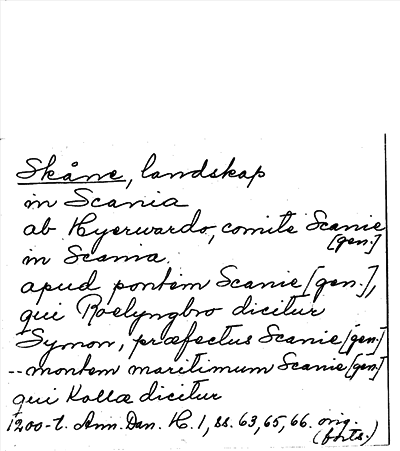 Skåne, landskap
in Scania
ab Hyerwardo, comite Scanie
[gen.]
in Scania.
apud pontem Scanie [gen.],
qui Roelyngbro dicitur
Symon, præfectus Scanie [gen.]
-- montem maritimum Scanie [gen.]
qui Kollæ dicitur
1200-t. Ann. Dan. H. 1, ss. 63, 65, 66. orig.
(forts.)